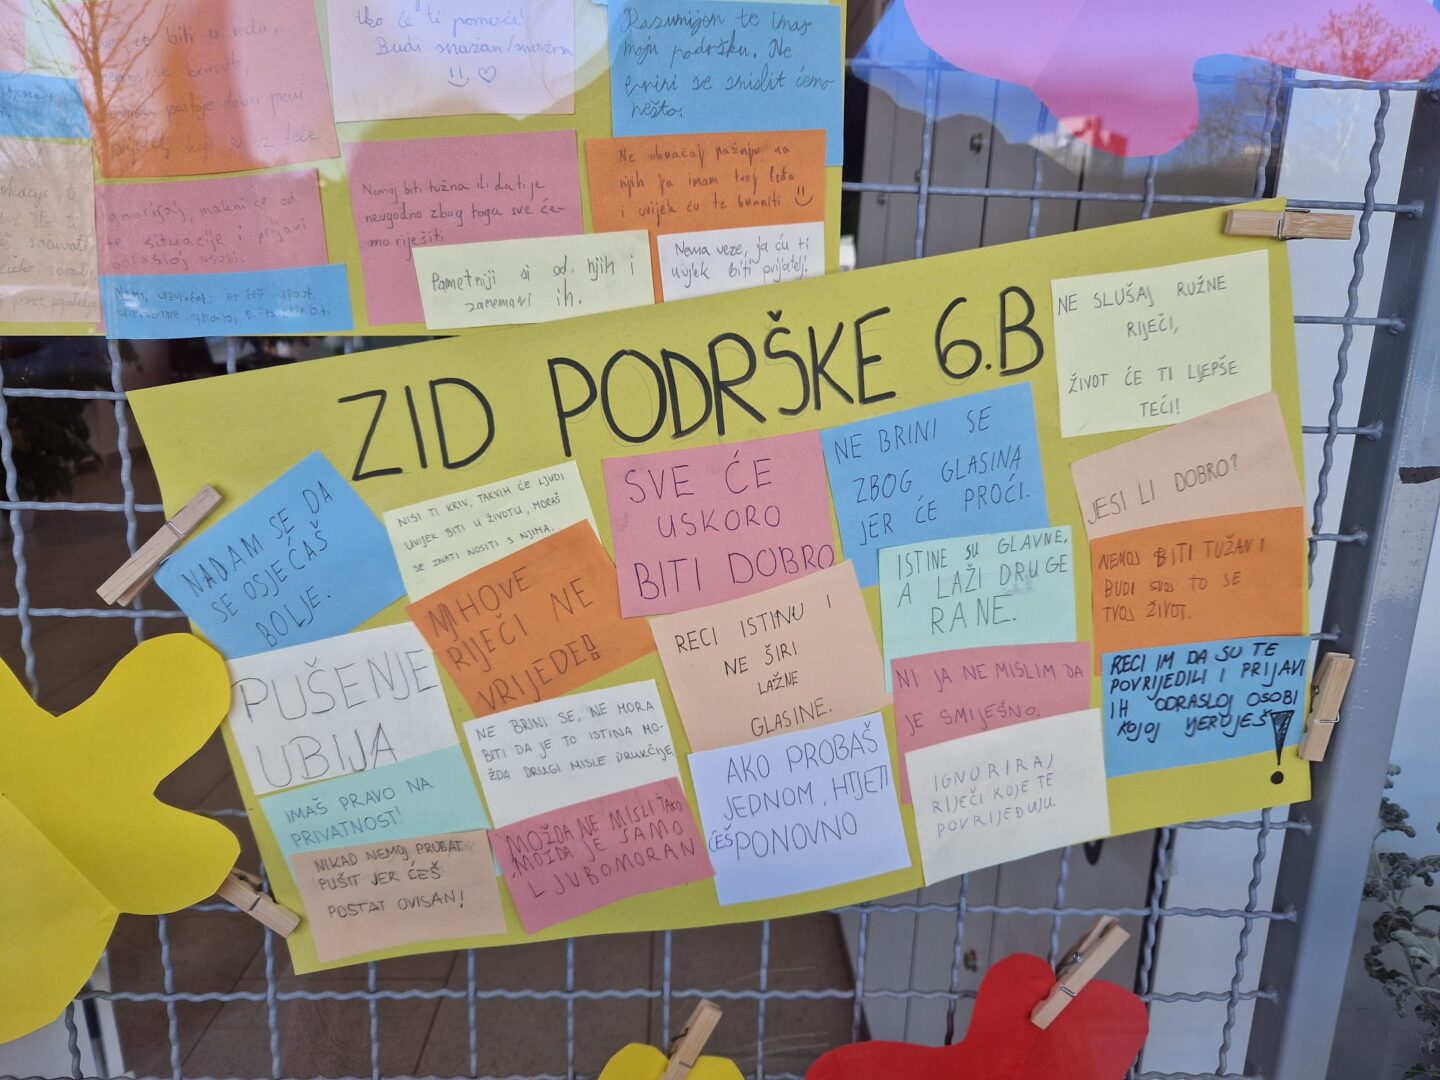 će biti u redu,
tko će ti pomoći!
Budi snažan/snažna
Razumijem te imaš
moju podršku. Ne
brini se smislit ćemo
nešto.
Nemoj biti tužna ili da ti je
neugodno zbog toga sve će-
mo riješiti
Ne obraćaj pažnju na
njih ja imam tvoj leđa
i uvijek ću te braniti
te situacije i prijavi
odrasloj osobi.
Pametniji si od njih i
zanemari ih.
Nema veze, ja ću ti
uvijek biti prijatelj.
ZID PODRŠKE 6.B
NE SLUŠAJ RUŽNE
RIJEČI,
ŽIVOT ĆE TI LJEPŠE
TEĆI!
NADAM SE DA
SE OSJEĆAŠ
BOLJE.
NISI TI KRIV, TAKVIH ĆE LJUDI
UVIJEK BITI U ŽIVOTU, MORAŠ
SE ZNATI NOSITI S NJIMA.
SVE ĆE
USKORO
BITI DOBRO
NE BRINI SE
ZBOG GLASINA
JER ĆE PROĆI.
JESI LI DOBRO?
NJIHOVE
RIJEČI NE
VRIJEDE!
ISTINE SU GLAVNE,
A LAŽI DRUGE
RANE.
NEMOJ BITI TUŽAN I
BUDI SVOJ TO SE
TVOJ ŽIVOT.
PUŠENJE
UBIJA
RECI ISTINU I
NE ŠIRI
LAŽNE
GLASINE.
NI JA NE MISLIM DA
JE SMIJEŠNO.
RECI IM DA SU TE
POVRIJEDILI I PRIJAVI
IH ODRASLOJ OSOBI
KOJOJ VJERUJEŠ!
NE BRINI SE, NE MORA
BITI DA JE TO ISTINA MO-
ŽDA DRUGI MISLE DRUKČIJE.
IMAŠ PRAVO NA
PRIVATNOST!
AKO PROBAŠ
JEDNOM, HTJETI
ĆEŠ PONOVNO
IGNORIRAJ
RIJEČI KOJE TE
POVRIJEĐUJU.
NIKAD NEMOJ PROBAT
PUŠIT JER ĆEŠ
POSTAT OVISAN!
MOŽDA NE MISLI TAKO
MOŽDA JE SAMO
LJUBOMORAN